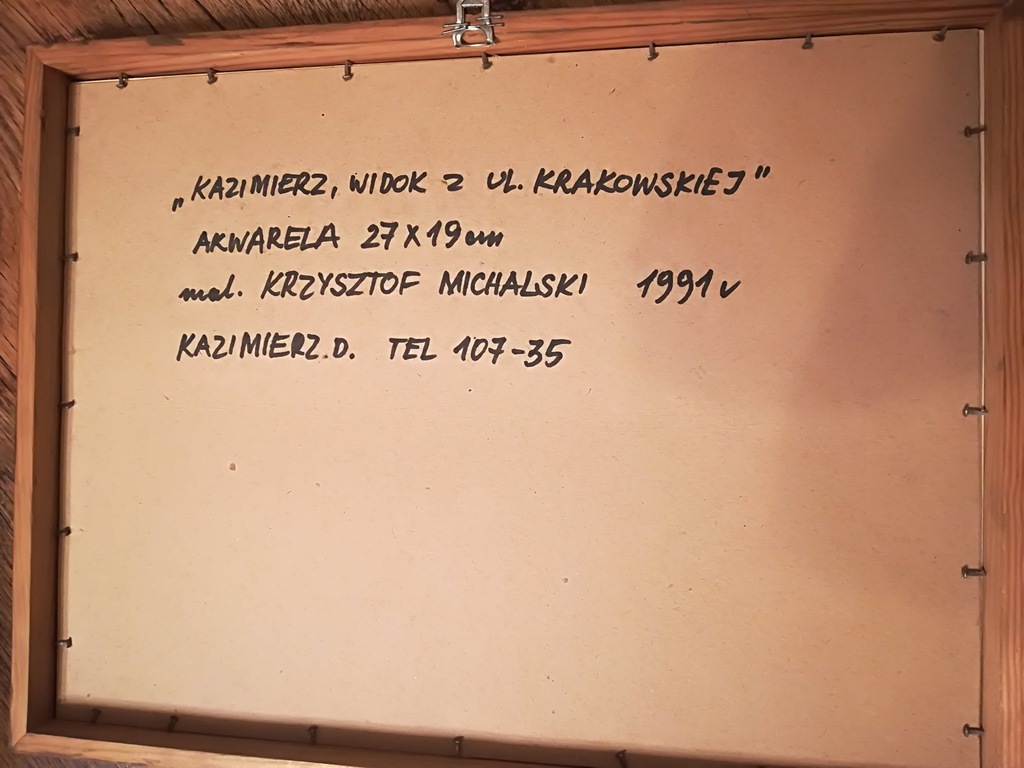 „KAZIMIERZ, WIDOK Z UL. KRAKOWSKIEJ"
AKWARELA 27 X 19 cm
mal. KRZYSZTOF MICHALSKI 1991 r
KAZIMIERZ.D. TEL 107-35